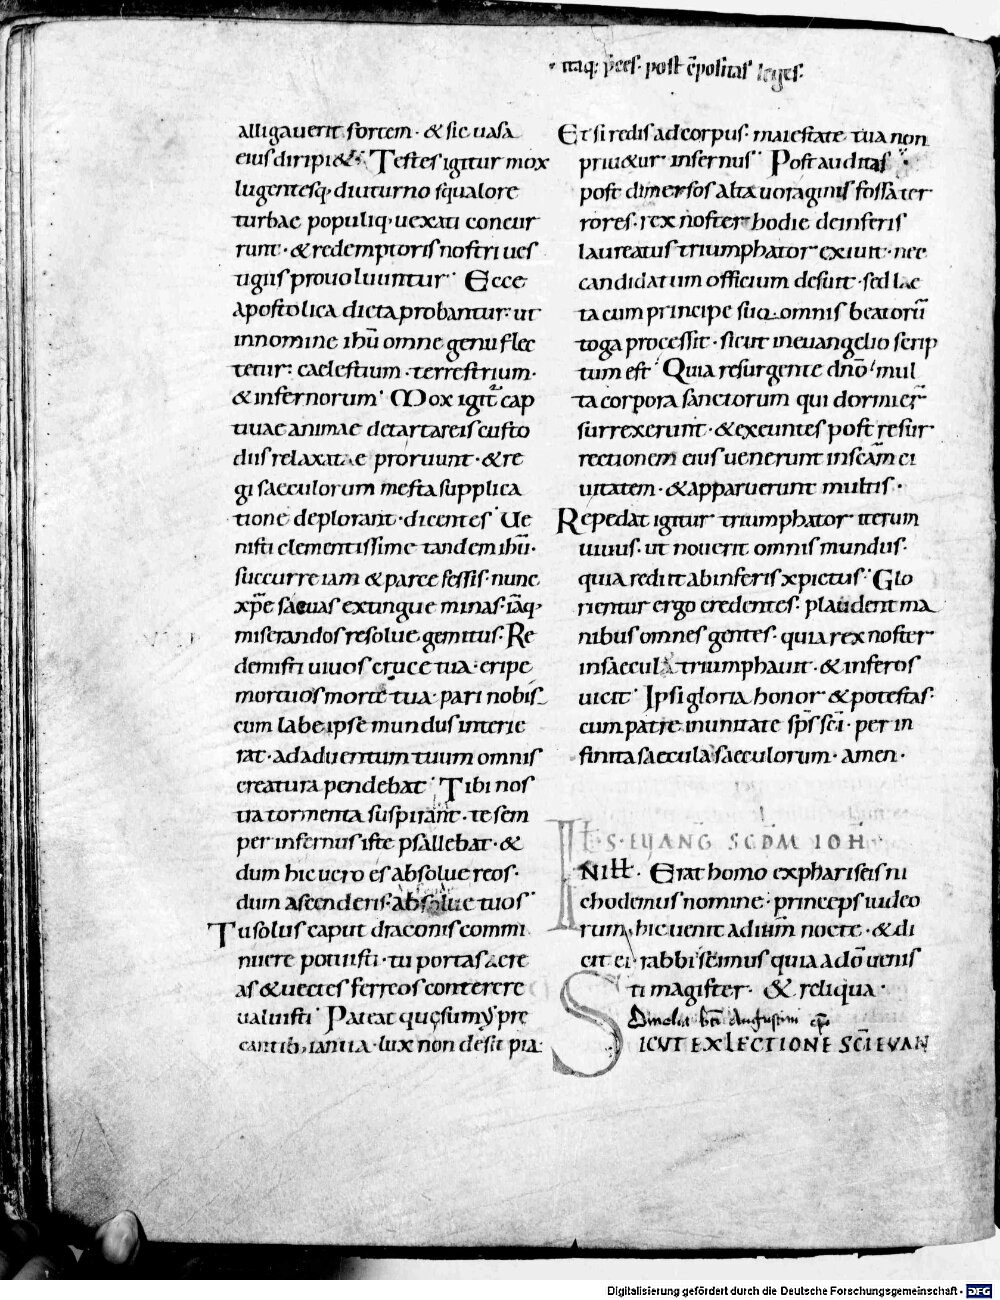 alligauerit fortem · & sic uasa
eius diripi&; Testes igitur mox
lugentesq; diuturno squalore
turbae populiq; uexati concur
runt · & redemptoris nostri ues
tigiis prouoluuntur · Ecce
apostolica dicta probantur · ut
in nomine ihū omne genu flec
tetur: caelestium · terrestrium ·
& infernorum · Mox igit̄ cap
tiuae animae detartareis custo
diis relaxatae proruunt · & re
gi saeculorum mesta supplica
tione deplorant · dicentes · Ue
nisti clementissime tandem ihū ·
succurre iam & parce fessis · nunc
xp̄e saeuas extingue minas · iāq;
miserandos resolue gemitus · Re
demisti uiuos cruce tua · eripe
mortuos morte tua · pari nobis
cum labe ipse mundus interie
rat · ad aduentum tuum omnis
creatura pendebat · Tibi nos
tra tormenta suspirant · te sem
per infernus iste psallebat · &
dum hic uero es absolue reos ·
dum ascenderis · absolue tuos
Tu solus caput draconis commi
nuere potuisti · tu portas aere
as & uectes ferreos conterere
ualuisti · Pateat quęsumus pre
cantib; ianua · lux non desit pia:
itaq: post leges ·
Et si redis ad corpus · maiestate tua non
priu&ur infernus · Post auditas
post dimersos alta uoraginis fossa ter
rores · rex noster hodie deinferis
laureatus triumphator exiuit · nec
candidatum officium desuit · sed lae
ta cum principe suo omnis beatorū
toga processit · sicut in euangelio scrip
tum est · Quia resurgente dn̄o mul
ta corpora sanctorum qui dormier̄
surrexerunt · & exeuntes post resur
rectionem eius uenerunt in sc̄am ci
uitatem · & apparuerunt multis ·
Repedat igitur triumphator iterum
uiuus · ut nouerit omnis mundus ·
quia rediit ab inferis xpictus · Glo
rientur ergo credentes · plaudent ma
nibus omnes gentes · quia rex noster
in saecula triumphauit · & inferos
uicit · Ipsi gloria honor & potestas ·
cum patre in unitate sp̄s sc̄i · per in
finita saecula saeculorum · amen ·
EUANG SCDM IOH
Erat homo ex phariseis ni
chodemus nomine · princeps iudeo
rum, hic uenit ad ihm̄ nocte · & di
cit ei · rabbi scimus quia a dō uenis
ti magister · & reliqua ·
Omelia bti Augustini ep̄i
SICUT EX LECTIONE SC̄I EUAN
Digitalisierung gefördert durch die Deutsche Forschungsgemeinschaft · DFG